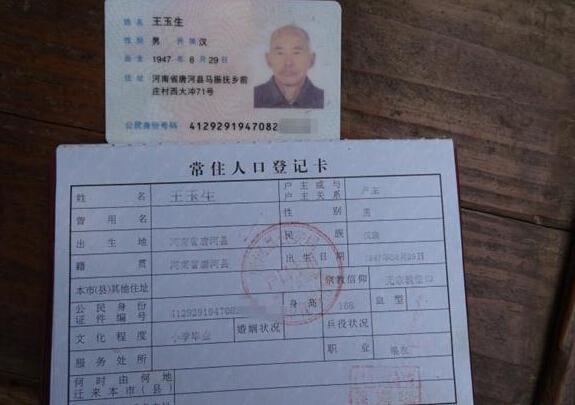 姓名 王玉生
性别 男 民族 汉
出生 1947 年 8 月 29 日
住址 河南省唐河县马振抚乡前
庄村西大冲71号
公民身份号码 4129291947082
常住人口登记卡
姓名 王玉生 户主或与户主关系 户主
曾用名 性别 男
出生地 河南省唐河县 民族 汉族
籍贯 河南省唐河县 出生日期 1947年08月29日
本市(县)其他住址 宗教信仰 无宗教信仰
公民身份证件编号 4129291947082 身高 168 血型
文化程度 小学毕业 婚姻状况 兵役状况
服务处所 职业
何时由何地迁来本市(县)